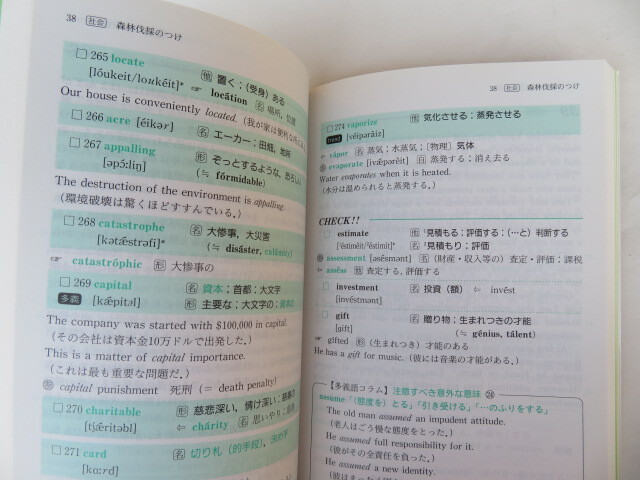 38 社会 森林伐採のつけ
265 locate
[lóukeit/loukéit]*
他 置く；(受身) ある
☞ locátion 名 場所，位置
Our house is conveniently located.（我が家は便利な所に
266 acre [éikər] 名 エーカー；田畑，地所
267 appalling
[əpɔ́ːliŋ]
形 ぞっとするような，
(≒ fórmidable)
The destruction of the environment is appalling.
（環境破壊は驚くほどすすんでいる。）
268 catastrophe
[kətǽstrəfi]*
名 大惨事，大災害
(≒ disáster, calámity)
☞ catastróphic 形 大惨事の
269 capital
多義 [kǽpitəl]
名 資本；首都；大文字
形 主要な；大文字の；
The company was started with $100,000 in capital.
（その会社は資本金10万ドルで出発した。）
This is a matter of capital importance.
（これは最も重要な問題だ。）
capital punishment 死刑 (= death penalty)
270 charitable
[tʃǽritəbl]
形 慈悲深い，情け深い；
⇐ chárity 名 思いやり；
271 card
[kɑːrd]
名 切り札，(的手段)，
38 社会 森林伐採のつけ
274 vaporize
[véipəràiz]
他 気化させる；蒸発させる
⇐ vápor 名 蒸気；水蒸気；[物理] 気体
evaporate [ivǽpərèit] 自 蒸発する；消え去る
Water evaporates when it is heated.
（水分は温められると蒸発する。）
CHECK!!
estimate
[éstimèit/éstimit]*
他 見積もる；評価する；(…と) 判断する
名 見積もり；評価
assessment [əsésmənt] 名 (財産・収入等の) 査定・評価；課税
⇐ asséss 他 査定する，評価する
investment
[invéstmənt]
名 投資（額） ⇐ invést
gift
[gift]
名 贈り物；生まれつきの才能
(≒ génius, tálent)
☞ gifted 形 (生まれつき) 才能のある
He has a gift for music.（彼には音楽の才能がある。）
【多義語コラム】注意すべき意外な意味
assume「(態度を) とる」「引き受ける」「…のふりをする」
The old man assumed an impudent attitude.
（老人はごう慢な態度をとった。）
He assumed full responsibility for it.
（彼がその全責任を負った。）
He assumed a new identity.